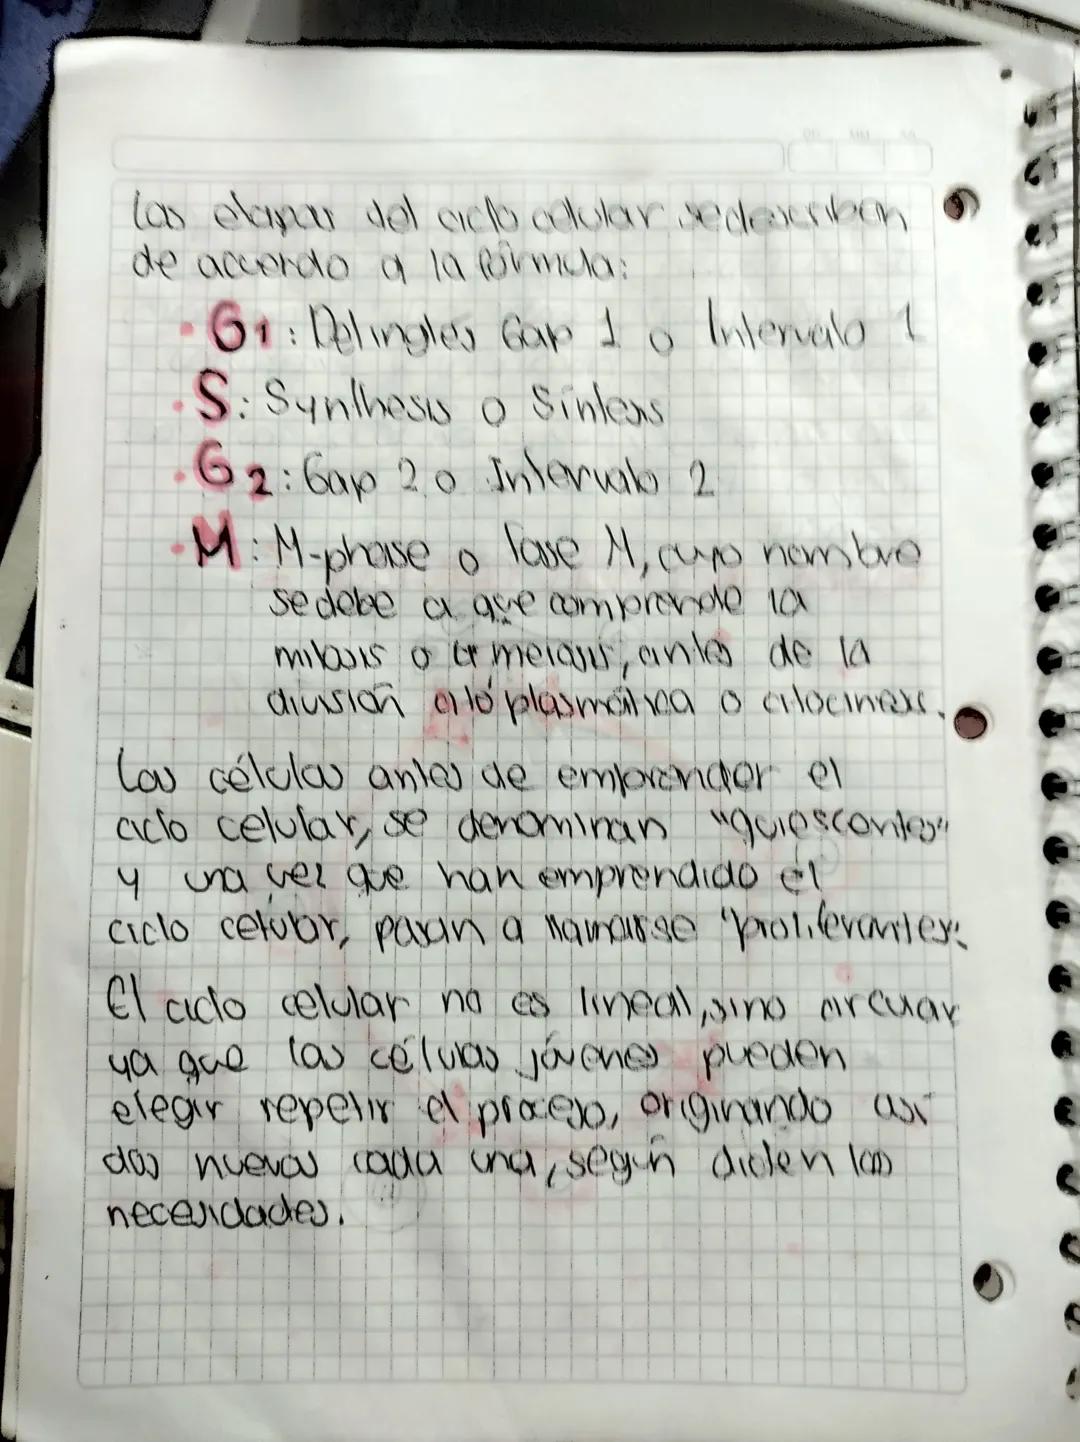 Las etapas del ciclo celular se describen
de acuerdo a la fórmula:
• G1: Del inglés Gap 1 o Intervalo 1
• S: Synthesis o Síntesis
• G2: Gap 2 o Intervalo 2
• M: M-phase o fase M, cuyo nombre
se debe a que comprende la
mitosis o meiosis, antes de la
división citoplasmática o citocinesis.
Las células antes de emprender el
ciclo celular, se denominan "quiescentes"
y una vez que han emprendido el
ciclo celular, pasan a llamarse "proliferantes".
El ciclo celular no es lineal, sino circular
ya que las células jóvenes pueden
elegir repetir el proceso, originando así
dos nuevas cada una, según dicten las
necesidades.